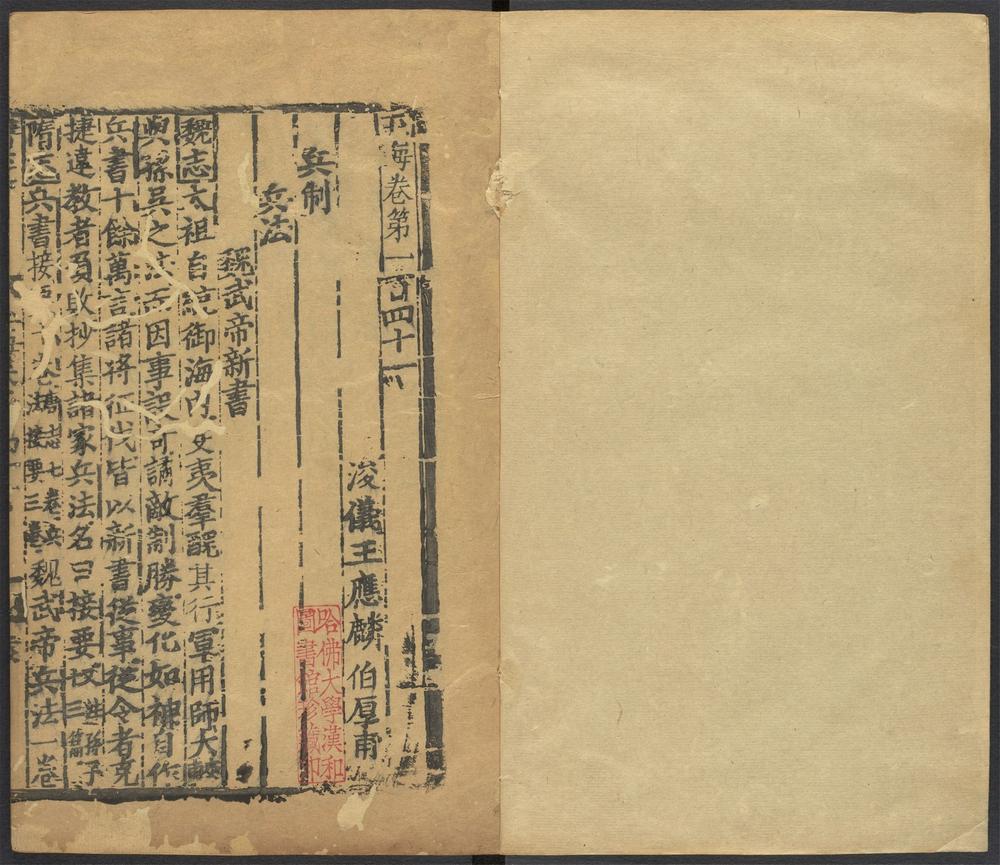 玉海卷第一百四十一
浚儀王應麟伯厚甫
兵制
兵法
魏武帝新書
魏志太祖自統御海內芟夷羣醜其行軍用師大較
與孫吳之法而因事設奇譎敵制勝變化如神自作
兵書十餘萬言諸將征伐皆以新書從事從令者克
捷違教者負敗抄集諸家兵法名曰接要又註孫子三篇
隋志兵書接要十卷唐志七卷兵法接要三卷魏武帝兵法一卷
哈佛大學漢和
圖書館珍藏印